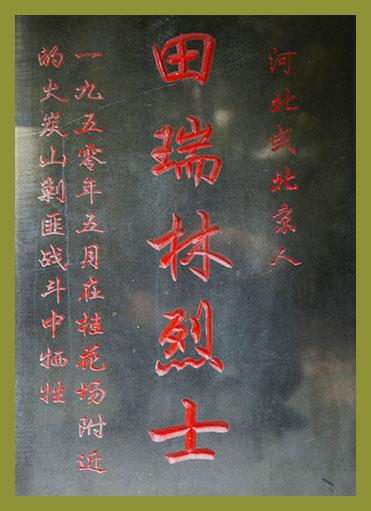 河北或北京人
田瑞林烈士
一九五零年五月在桂花场附近
的火炭山剿匪战斗中牺牲